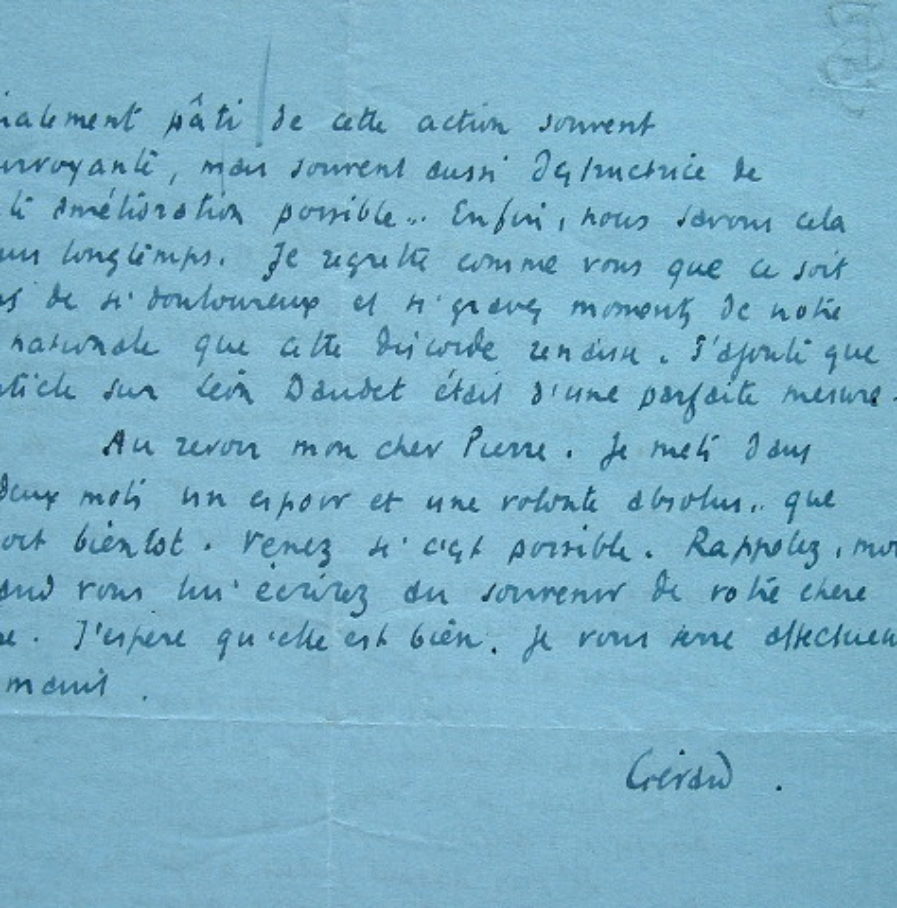 ialement pâti de cette action souvent
urvoyante, mais souvent aussi destructrice de
te amélioration possible... Enfin, nous savons cela
uis longtemps. Je regrette comme vous que ce soit
ns de si douloureux et si graves moments de notre
nationale que cette discorde renaisse. J'ajoute que
rticle sur Léon Daudet était d'une parfaite mesure.
Au revoir mon cher Pierre. Je mets dans
deux mots un espoir et une volonté absolus.. que
oit bientot. Venez si c'est possible. Rappelez, moi
and vous lui écrirez au souvenir de votre chère
re. J'espère qu'elle est bien. Je vous serre affectueu
main
Gérard.